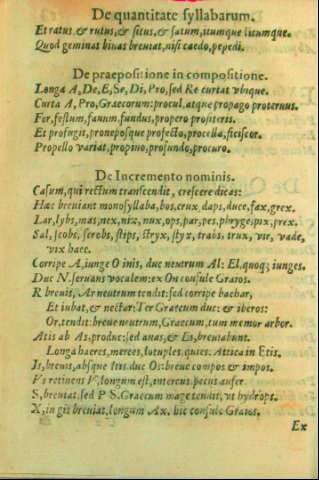 De quantitate syllabarum.
Et ratus & rutus, & situs, & satum, itumque litumque.
Quod geminat binas breuiat, nisi caedo, pepedi.
De praepositione in compositione.
Longa A, De, E, Se, Di, Pro, sed Re curtat vbique.
Curta A, Pro, Graecorum: procul, atque propago proteruus.
For, festum, fanum, fundus, propero profiteris.
Et profugis, proneposque profecto, procella, ficiscor.
Propello variat, propino, profundo, procuro.
De Incremento nominis.
Casum, qui rectum transcendit, crescere dicas:
Haec breuiant monosyllaba, bos, crux, daps, duce, fax, grex.
Lar, lybs, mas, nex, nix, nux, ops, par, pes, phryge, pix, prex.
Sal, scobs, scrobs, stips, stryx, styx, trabs, trux, vir, vade,
vix haec.
Corripe A, iunge O inis, duc neutrum Al: El, quoq; iunges.
Duc N. seruans vocalem: ex On consule Graios.
R breuis, Ar neutrum tendit: sed corripe bachar,
Et iubar, & nectar: Ter Graecum duc: & iberos:
Or, tendit: breue neutrum, Graecum, tum memor arbor.
Atis ab As, produc: sed anas, & Es, breuiabunt.
Longa haeres, merces, locuples, quies. Attica in Etis.
Is, breuis, absque Itis duc Os: breue compos & impos.
Vs retinens V, longum est, intercus, pecus aufer
S, breuiat, sed P S. Graecum mage tendit, vt hydrops.
X, in gis breuiat, longum Ax. hic consule Graios.
Ex